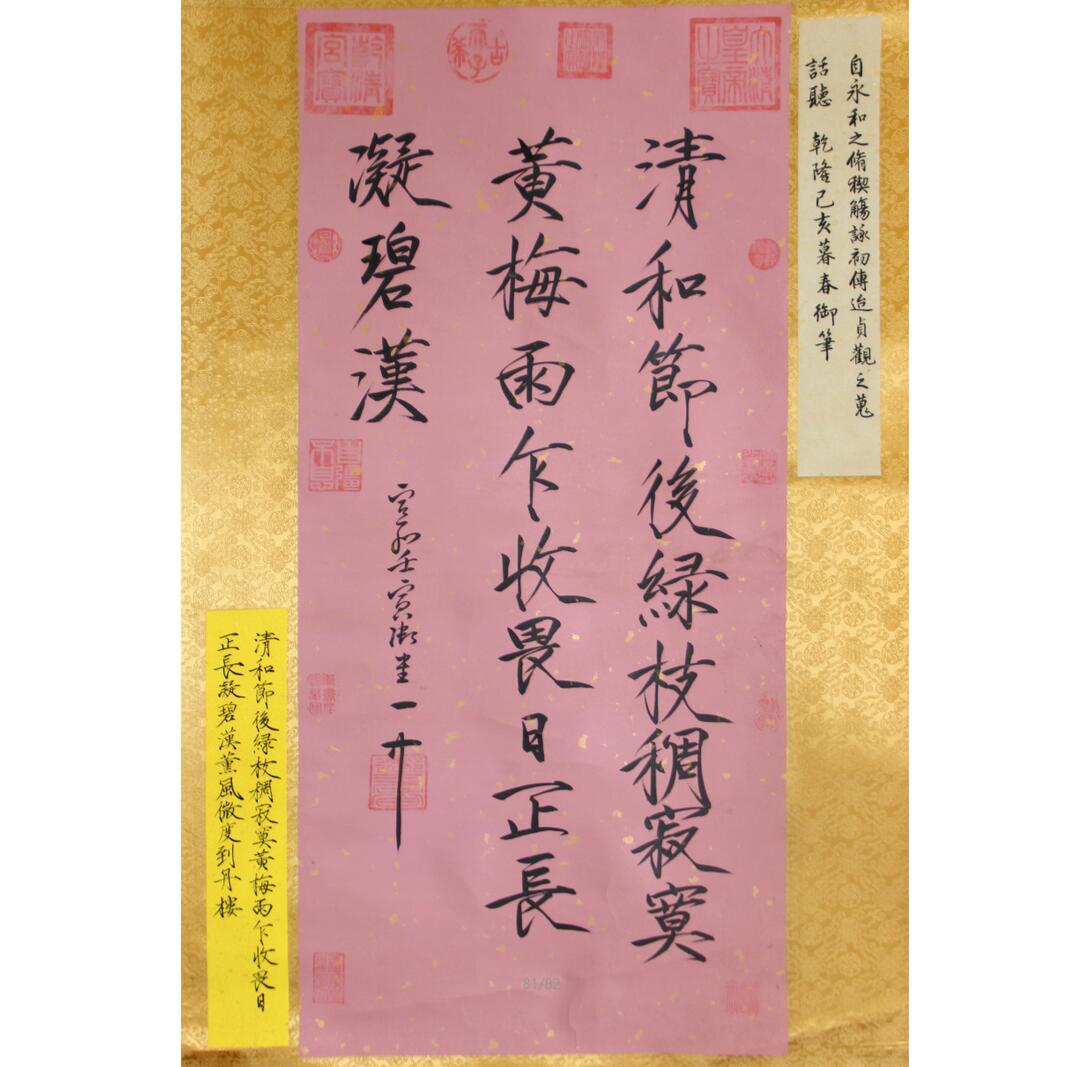 自永和之脩稧觴詠初傳迨貞觀之蒐
話聽 乾隆己亥暮春御筆
清和節後緑枝稠寂寞
黃梅雨乍收畏日正長
凝碧漢
宣和壬寅御書
清和節後緑枝稠寂寞黃梅雨乍收畏日
正長凝碧漢薰風微度到丹樓
乾清
宮寶
古
希
天子
大清
皇帝
之寶
自彊
不息
81/82